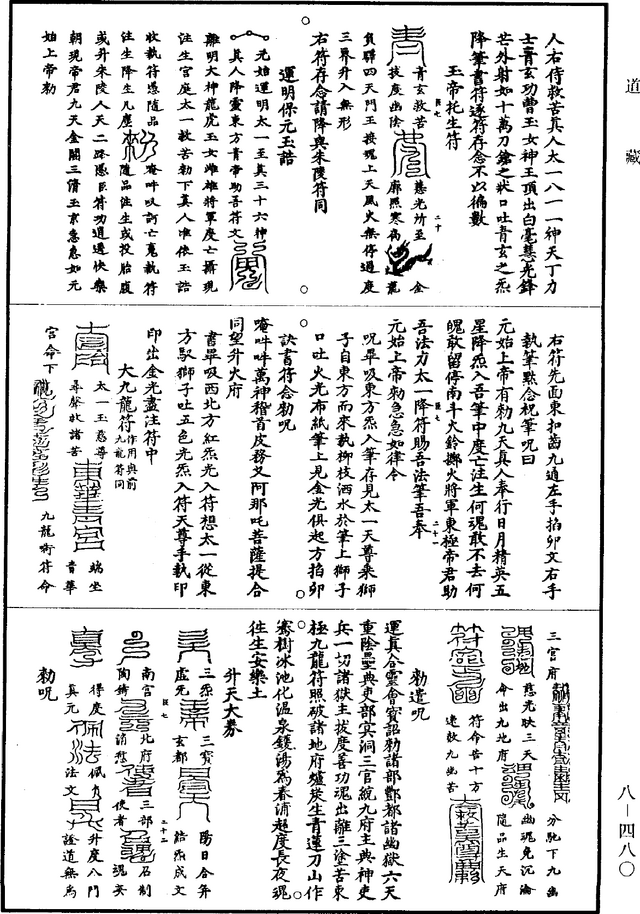 道藏
人右侍救苦真人太一八一一神天丁力
士青玄功曹玉女神王頂出白毫慧光鋒
芒外射如十萬刀鎗之狀口吐青玄之炁
降筆書符逐符存念不以徧數
玉帝托生符
青玄救苦
拔度幽陰
慈光所至
廓照寒
二十
金
龍
負驛四天門王接魂上天風火無停過度
三界升入無形
右符存念請降與朱陵符同
運明保元玉誥
元始運明太一至真三十六神
真人降靈東方青帝助吾符文
離明大神龍虎玉女雌雄將軍度亡攝現
注生宮庭太一救苦勅下真人準依玉誥
收執符憑隨品
注生降生凡塵
唵吽吸訶亡魂執符
隨品注生或投胎腹
或升朱陵人天二路憑臣符功逍遙快樂
朝現帝君九天金闕三清玉京急急如元
始上帝勅
右符先面東扣齒九通左手掐卯文右手
執筆默念祝筆呪曰
元始上帝有勅九天真人奉行日月精英五
星降炁入吾筆中度亡注生何魂敢不去何
魄敢留停南斗火鈴擲火將軍東極帝君助
吾法力太一降符賜吾法筆吾奉
二十一
元始上帝勅急急如律令
呪畢吸東方炁入筆存見太一天尊乘獅
子自東方而來執柳枝洒水於筆上獅子
口吐火光布紙筆上見金光俱起方掐卯
訣書符念勅呪
唵吽吽萬神稽首皮務叉阿那吒菩薩提合
同望升火府
書畢吸西北方紅炁光入符想太一從東
方馭獅子吐五色光炁入符天尊手執印
印出金光盡注符中
大九龍符作用與前九龍符同
太一玉慈尊
尋聲救諸苦
端坐
青華
宮命下
九龍衔符命
三官府
分馳下九幽
慈光映三天
命出九地府
幽魂免沉淪
隨品生天府
符命告十方
速救九幽苦
勅遣呪
運真合靈會寶詔勅諸部酆都諸幽獄六天
重陰壘典吏部冥洞三官統九府主典神吏
兵一切諸獄主拔度善功魂出離三塗苦東
極九龍符照破諸地府爐炭生青蓮刀山作
騫樹冰池化溫泉鑊湯為春浦超度長夜魂
徃生安樂土
升天大券
三炁
虛无
三寶
玄都
陽日合并
結炁成文
南宮
陶鑄
北府
消愆
三部
使者
召制
魂妄
二十二
得度
真元
佩負
法文
升度八門
證道無為
勅呪
八—四八〇